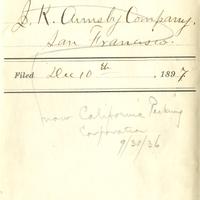 J. K. Armsby Company.
San Francisco.
Filed Dec 10th, 1897
now California Packing
Corporation
9/30/36